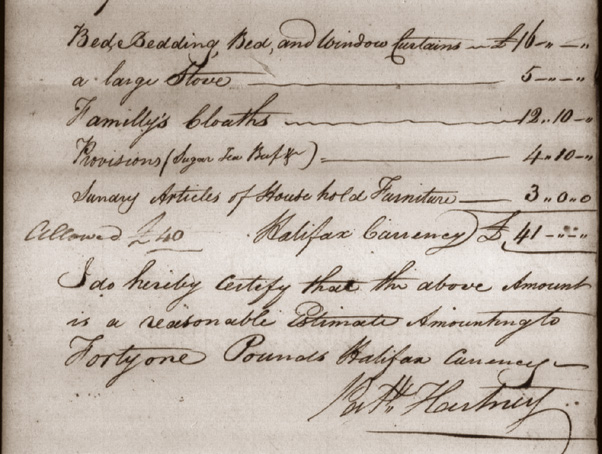 Bed, Bedding, Bed, and Window Curtains — £16 - „ - „
a large Stove — 5 - „ - „
Familly's Cloaths — 12 „ 10 - „
Provisions (Sugar Tea Beef &c) = 4 „ 10 - „
Sundry Articles of Household Furniture — 3 „ 0 „ 0
Allowed £40 Halifax Currency £ 41 - „ - „
I do hereby Certify that the above Amount
is a reasonable Estimate Amounting to
Forty one Pounds Halifax Currency —
Patk Hartney